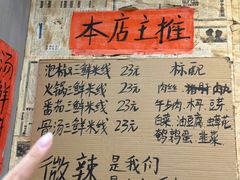 本店主推
泡椒三鲜米线 23元
火锅三鲜米线 23元
番茄三鲜米线 23元
骨汤三鲜米线 23元
标配
肉丝
午歺肉 木耳 豆芽
白菜 油豆腐
鹌鹑蛋 韭菜
微辣是我们
汤鲜